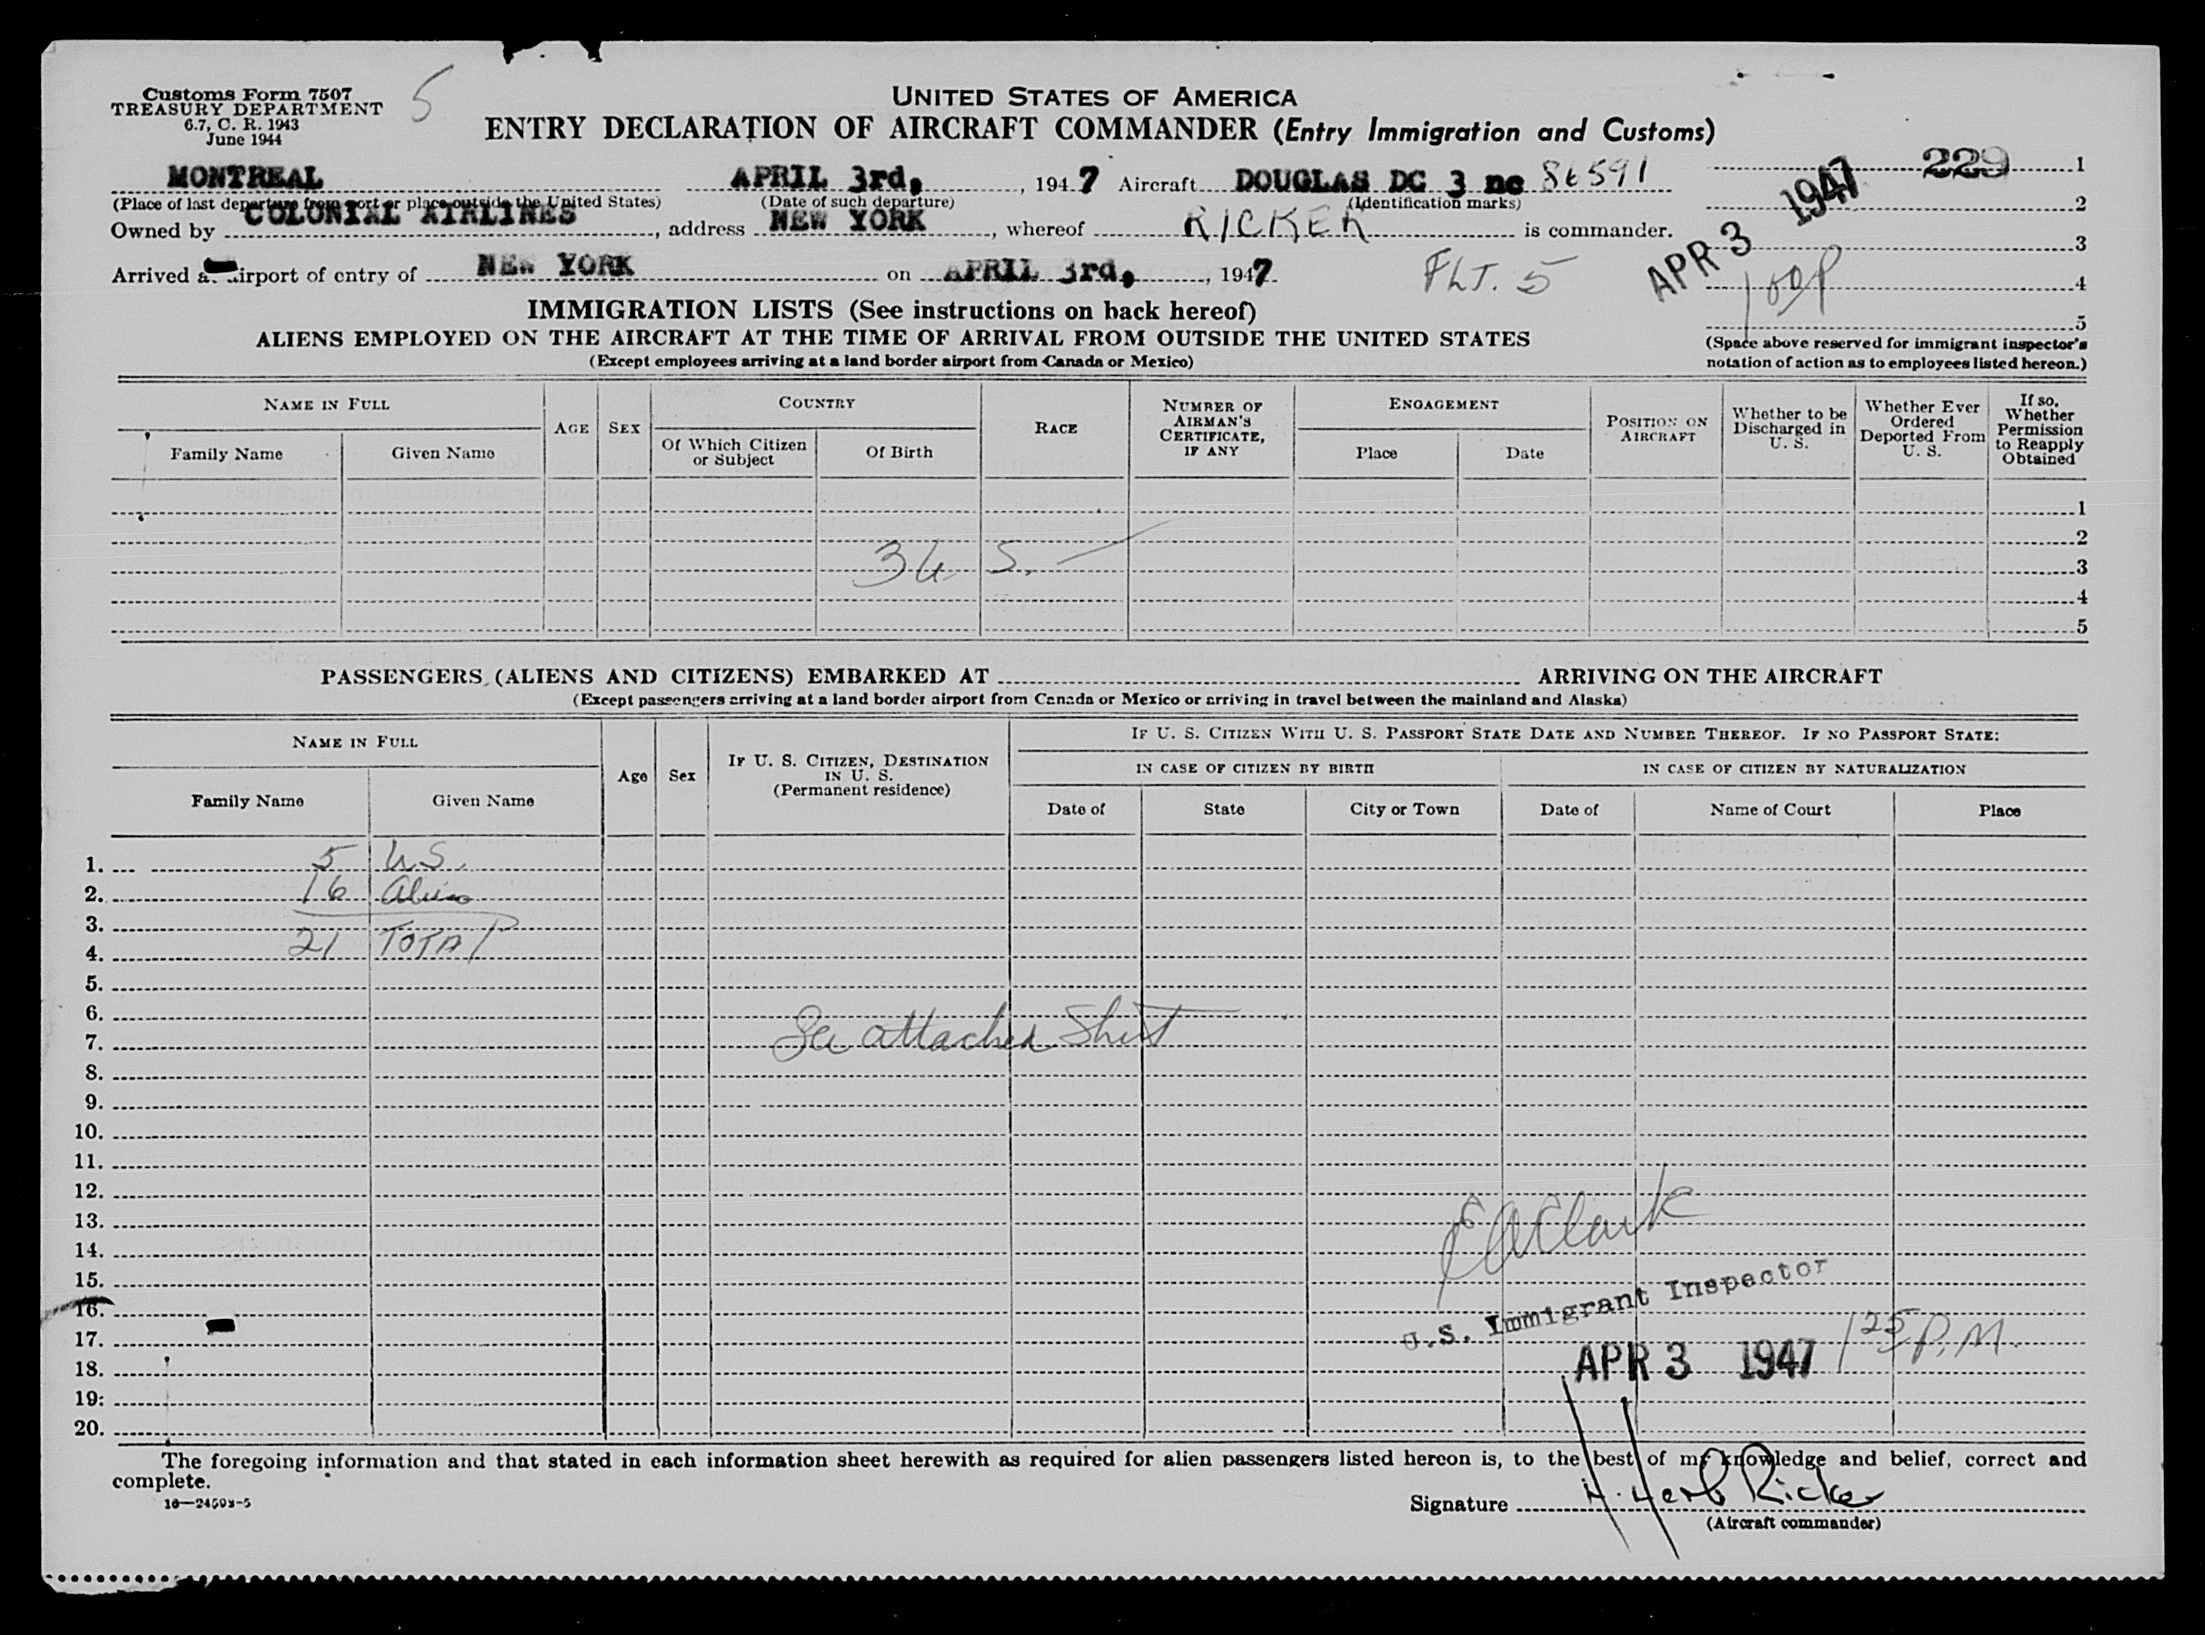 Customs Form 7507
TREASURY DEPARTMENT
6.7, C. R. 1943
June 1944
5
UNITED STATES OF AMERICA
ENTRY DECLARATION OF AIRCRAFT COMMANDER (Entry Immigration and Customs)
MONTREAL APRIL 3rd, , 1947 Aircraft DOUGLAS DC 3 nc 86591
(Place of last departure from port or place outside the United States) (Date of such departure) (Identification marks)
Owned by COLONIAL AIRLINES, address NEW YORK, whereof RICKER is commander.
Arrived at airport of entry of NEW YORK on APRIL 3rd, , 1947. FLT. 5
229 1
2
3
4
5
APR 3 1947
100P
(Space above reserved for immigrant inspector's
notation of action as to employees listed hereon.)
IMMIGRATION LISTS (See instructions on back hereof)
ALIENS EMPLOYED ON THE AIRCRAFT AT THE TIME OF ARRIVAL FROM OUTSIDE THE UNITED STATES
(Except employees arriving at a land border airport from Canada or Mexico)
NAME IN FULL
Family Name Given Name
AGE SEX
COUNTRY
Of Which Citizen or Subject Of Birth
RACE
NUMBER OF AIRMAN'S CERTIFICATE, IF ANY
ENGAGEMENT
Place Date
POSITION ON AIRCRAFT
Whether to be Discharged in U. S.
Whether Ever Ordered Deported From U. S.
If so, Whether Permission to Reapply Obtained
1
2
3 U. S. 3
4
5
PASSENGERS (ALIENS AND CITIZENS) EMBARKED AT ARRIVING ON THE AIRCRAFT
(Except passengers arriving at a land border airport from Canada or Mexico or arriving in travel between the mainland and Alaska)
NAME IN FULL
Family Name Given Name
Age Sex
IF U. S. CITIZEN, DESTINATION IN U. S.
(Permanent residence)
IF U. S. CITIZEN WITH U. S. PASSPORT STATE DATE AND NUMBER THEREOF. IF NO PASSPORT STATE:
IN CASE OF CITIZEN BY BIRTH IN CASE OF CITIZEN BY NATURALIZATION
Date of State City or Town Date of Name of Court Place
1. 5 U.S.
2. 16 Aliens
3.
4. 21 TOTAL
5.
6.
7. See attached Sheet
8.
9.
10.
11.
12.
13. E A Clark
14.
15.
16. U.S. Immigrant Inspector
17.
18. APR 3 1947 125 P.M.
19.
20.
The foregoing information and that stated in each information sheet herewith as required for alien passengers listed hereon is, to the best of my knowledge and belief, correct and
complete.
16—24598-5
Signature H. Herb Ricker
(Aircraft commander)